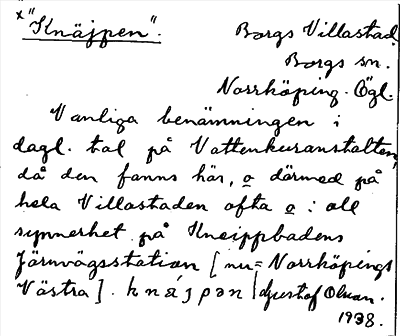 x "Knäjpen".
Borgs Villastad.
Borgs sn.
Norrköping. Ögl.
Vanliga benämningen i
dagl. tal på Vattenkuranstalten,
då den fanns här, o därmed på
hela Villastaden ofta o: all
synnerhet på Kneippbadens
Järnvägsstation [nu = Norrköpings
Västra]. knájpən | Gustaf Olson.
1938.